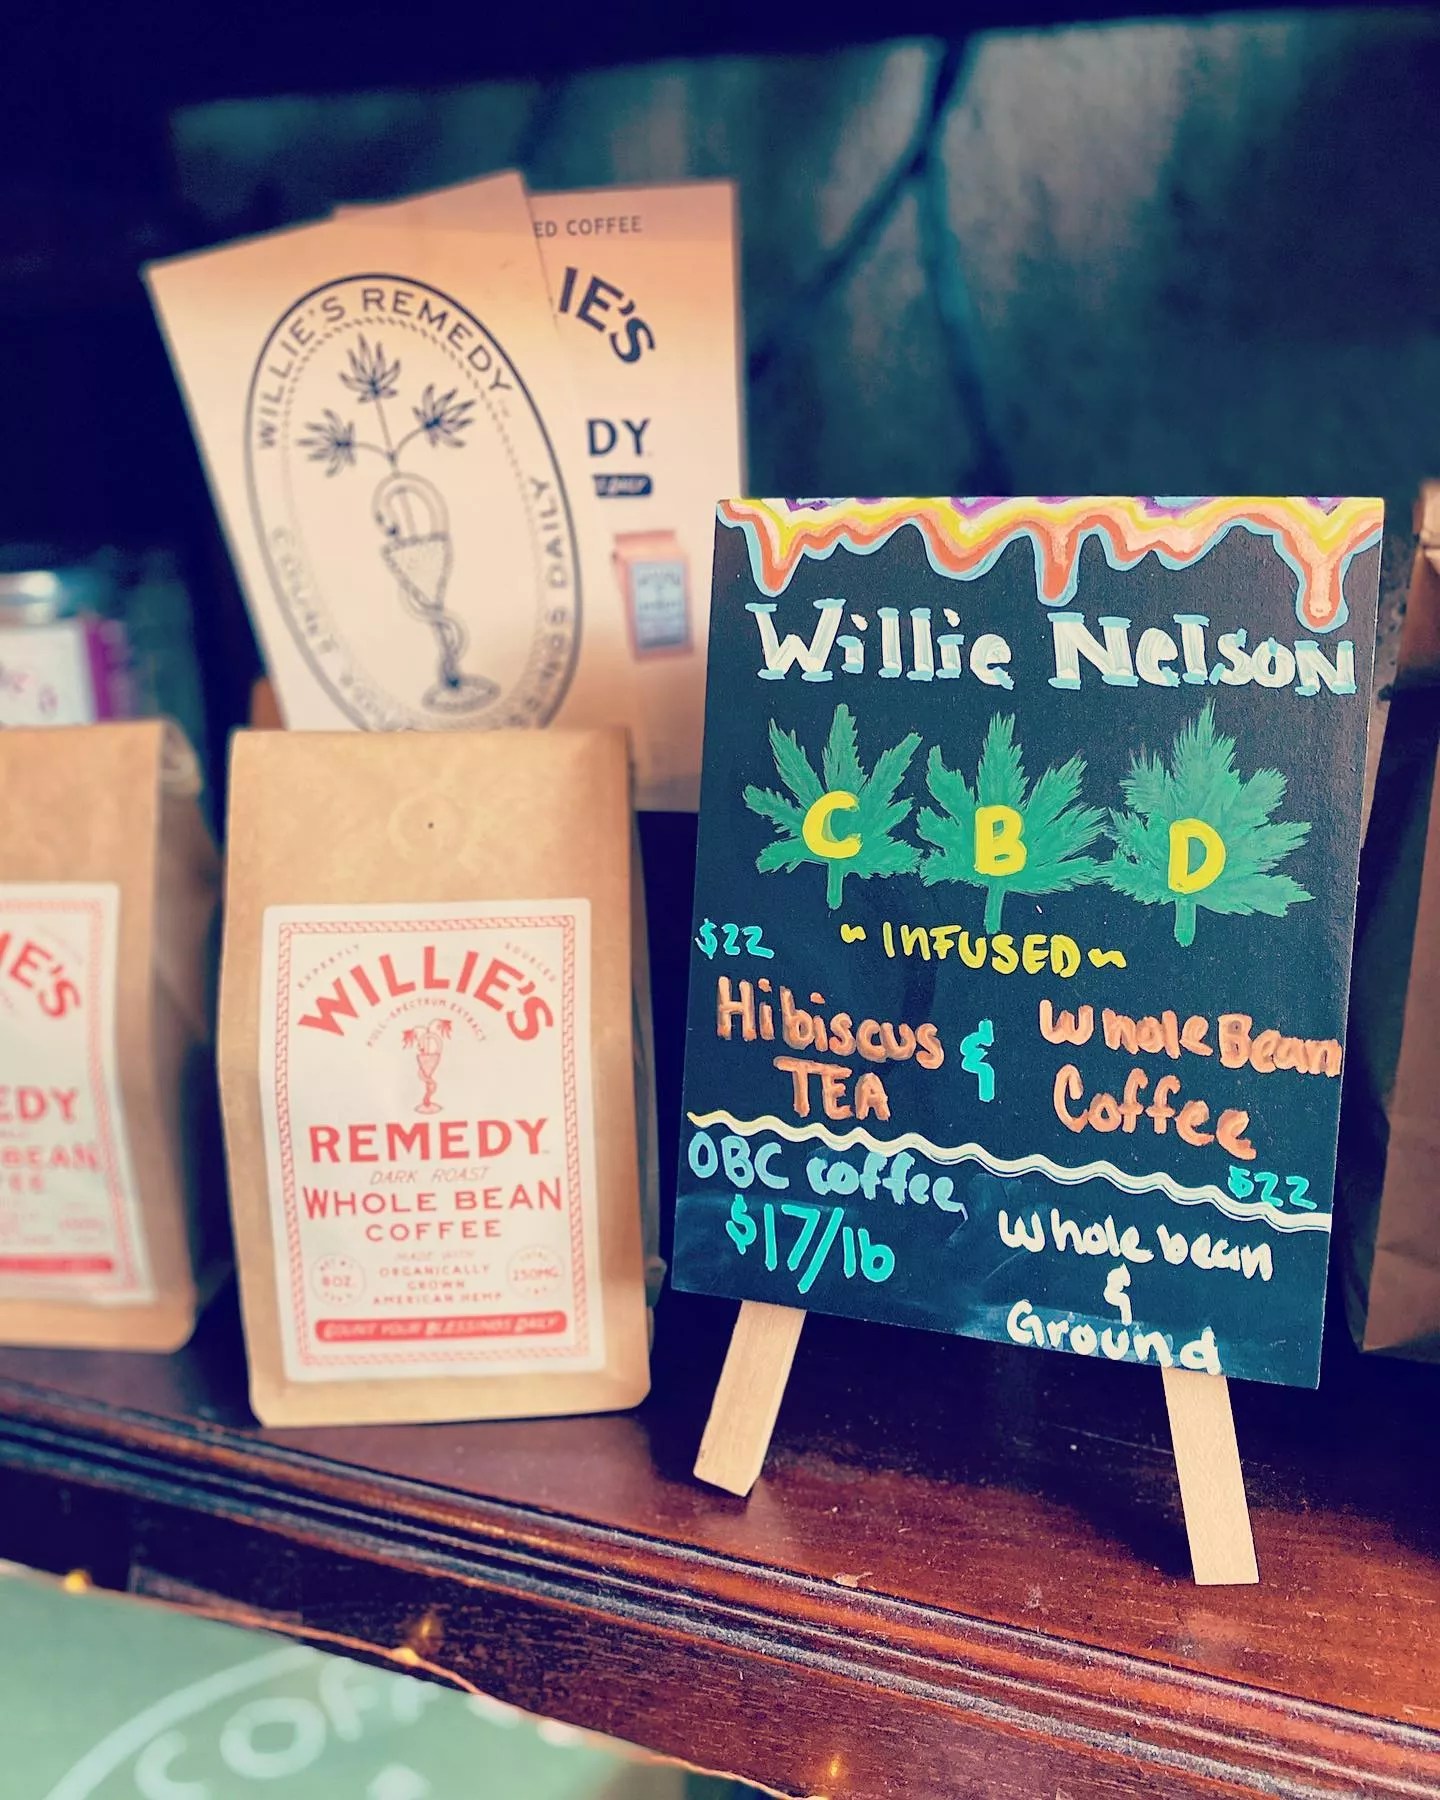 ED COFFEE
IE'S
DY
WILLIE'S REMEDY
COUNT YOUR
Willie Nelson
C B D
~ INFUSED ~
$22
Hibiscus
TEA
&
Whole Bean
Coffee
$22
OBC coffee
$17/lb
whole bean
&
Ground
EXPERTLY SOURCED
WILLIE'S
FULL-SPECTRUM EXTRACT
REMEDY
DARK ROAST
WHOLE BEAN
COFFEE
MADE WITH
ORGANICALLY
GROWN
AMERICAN HEMP
8OZ.
250MG
COUNT YOUR BLESSINGS DAILY
IE'S
EDY
BEAN
COFF